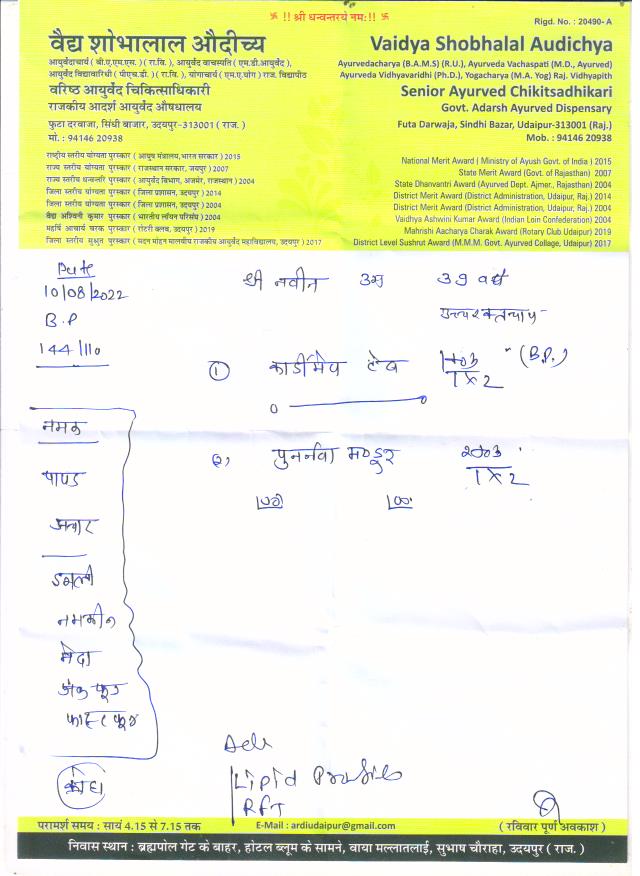 卐 !! श्री धन्वन्तरये नमः!! 卐
Rigd. No. : 20490- A
वैद्य शोभालाल औदीच्य
आयुर्वेदाचार्य ( बी.ए.एम.एस. ) ( रा.वि. ), आयुर्वेद वाचस्पति ( एम.डी.आयुर्वेद ),
आयुर्वेद विद्यावारिधी ( पीएच.डी. ) ( रा.वि. ), योगाचार्य ( एम.ए.योग ) राज. विद्यापीठ
वरिष्ठ आयुर्वेद चिकित्साधिकारी
राजकीय आदर्श आयुर्वेद औषधालय
फुटा दरवाजा, सिंधी बाजार, उदयपुर-313001 ( राज. )
मो. : 94146 20938
राष्ट्रीय स्तरीय योग्यता पुरस्कार ( आयुष मंत्रालय, भारत सरकार ) 2015
राज्य स्तरीय योग्यता पुरस्कार ( राजस्थान सरकार, जयपुर ) 2007
राज्य स्तरीय धन्वन्तरि पुरस्कार ( आयुर्वेद विभाग, अजमेर, राजस्थान ) 2004
जिला स्तरीय योग्यता पुरस्कार ( जिला प्रशासन, उदयपुर ) 2014
जिला स्तरीय योग्यता पुरस्कार ( जिला प्रशासन, उदयपुर ) 2004
वैद्य अश्विनी कुमार पुरस्कार ( भारतीय लॉयन परिसंघ ) 2004
महर्षि आचार्य चरक पुरस्कार ( रोटरी क्लब, उदयपुर ) 2019
जिला स्तरीय सुश्रुत पुरस्कार ( मदन मोहन मालवीय राजकीय आयुर्वेद महाविद्यालय, उदयपुर ) 2017
Vaidya Shobhalal Audichya
Ayurvedacharya (B.A.M.S) (R.U.), Ayurveda Vachaspati (M.D., Ayurved)
Ayurveda Vidhyavaridhi (Ph.D.), Yogacharya (M.A. Yog) Raj. Vidhyapith
Senior Ayurved Chikitsadhikari
Govt. Adarsh Ayurved Dispensary
Futa Darwaja, Sindhi Bazar, Udaipur-313001 (Raj.)
Mob. : 94146 20938
National Merit Award ( Ministry of Ayush Govt. of India ) 2015
State Merit Award (Govt. of Rajasthan) 2007
State Dhanvantri Award (Ayurved Dept. Ajmer., Rajasthan) 2004
District Merit Award (District Administration, Udaipur, Raj.) 2014
District Merit Award (District Administration, Udaipur, Raj.) 2004
Vaidhya Ashwini Kumar Award (Indian Loin Confederation) 2004
Mahrishi Aacharya Charak Award (Rotary Club Udaipur) 2019
District Level Sushrut Award (M.M.M. Govt. Ayurved Collage, Udaipur) 2017
Date
10/08/2022
B.P
144/110
श्री नवीन उम्र 39 वर्ष
उच्चरक्तचाप
① कार्डीमेप टेब (B.P.)
1 x 2
२, पुनर्नवा मण्डूर
1 x 2
नमक
पापड
अचार
इमली
नमकीन
मैदा
जंक फूड
फास्ट फूड
क्रोध
Adv
Lipid Profile
RFT
परामर्श समय : सायं 4.15 से 7.15 तक
E-Mail : ardiudaipur@gmail.com
( रविवार पूर्ण अवकाश )
निवास स्थान : ब्रह्मपोल गेट के बाहर, होटल ब्लूम के सामने, वाया मल्लातलाई, सुभाष चौराहा, उदयपुर ( राज. )